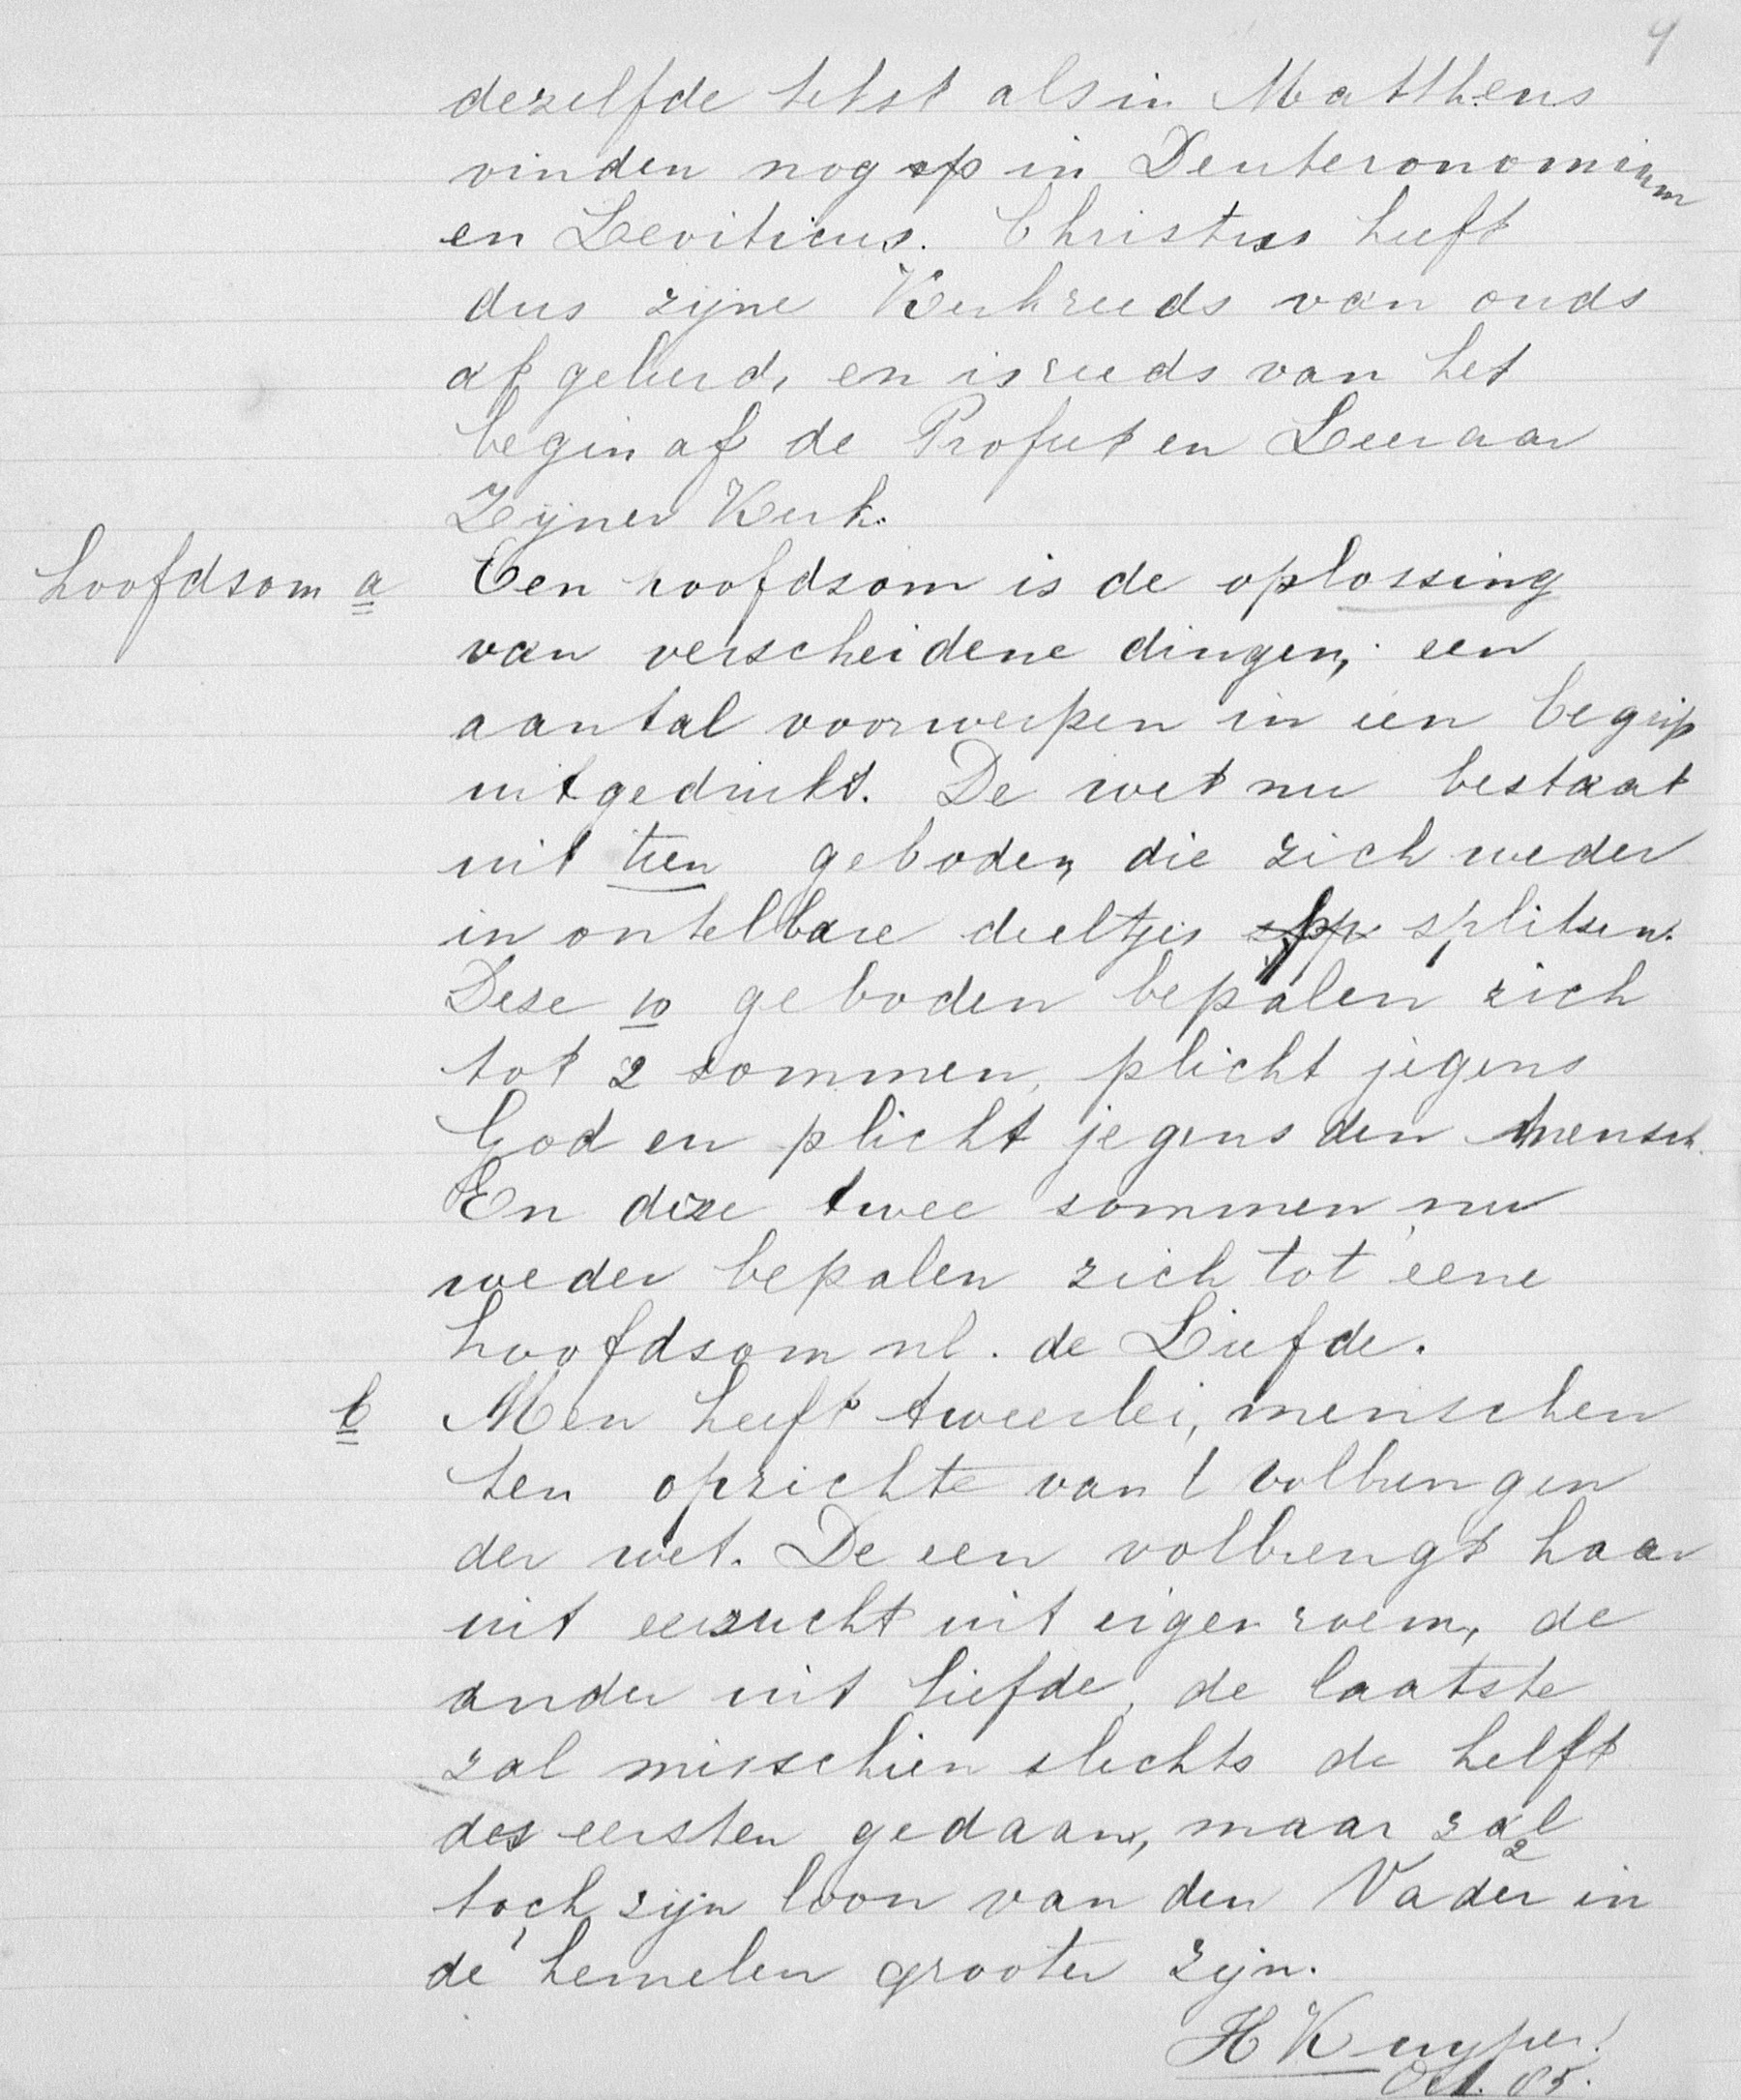 9
dezelfde tekst als in Mattheus
vinden nog op in Deuteronomium
en Leviticus. Christus heeft
dus zijne Kerk reeds van ouds
af geleerd, en is reeds van het
begin af de Profeet en Leeraar
Zijner Kerk.
hoofdsom a Een hoofdsom is de oplossing
van verscheidene dingen, een
aantal voorwerpen in een begrip
uitgedrukt. De wet nu bestaat
uit tien geboden, die zich weder
in ontelbare deeltjes splitsen.
Deze 10 geboden bepalen zich
tot 2 sommen, plicht jegens
God en plicht jegens den mensch.
En deze twee sommen nu
weder bepalen zich tot eene
hoofdsom nl. de Liefde.
b Men heeft tweeerlei, menschen
ten opzichte van t volbrengen
der wet. De een volbrengt haar
uit eerzucht uit eigen roem, de
ander uit liefde, de laatste
zal misschien slechts de helft
des eersten gedaan, maar zal
toch zijn loon van den Vader in
de hemelen grooter zijn.
H Kuyper.
Oct. 85.